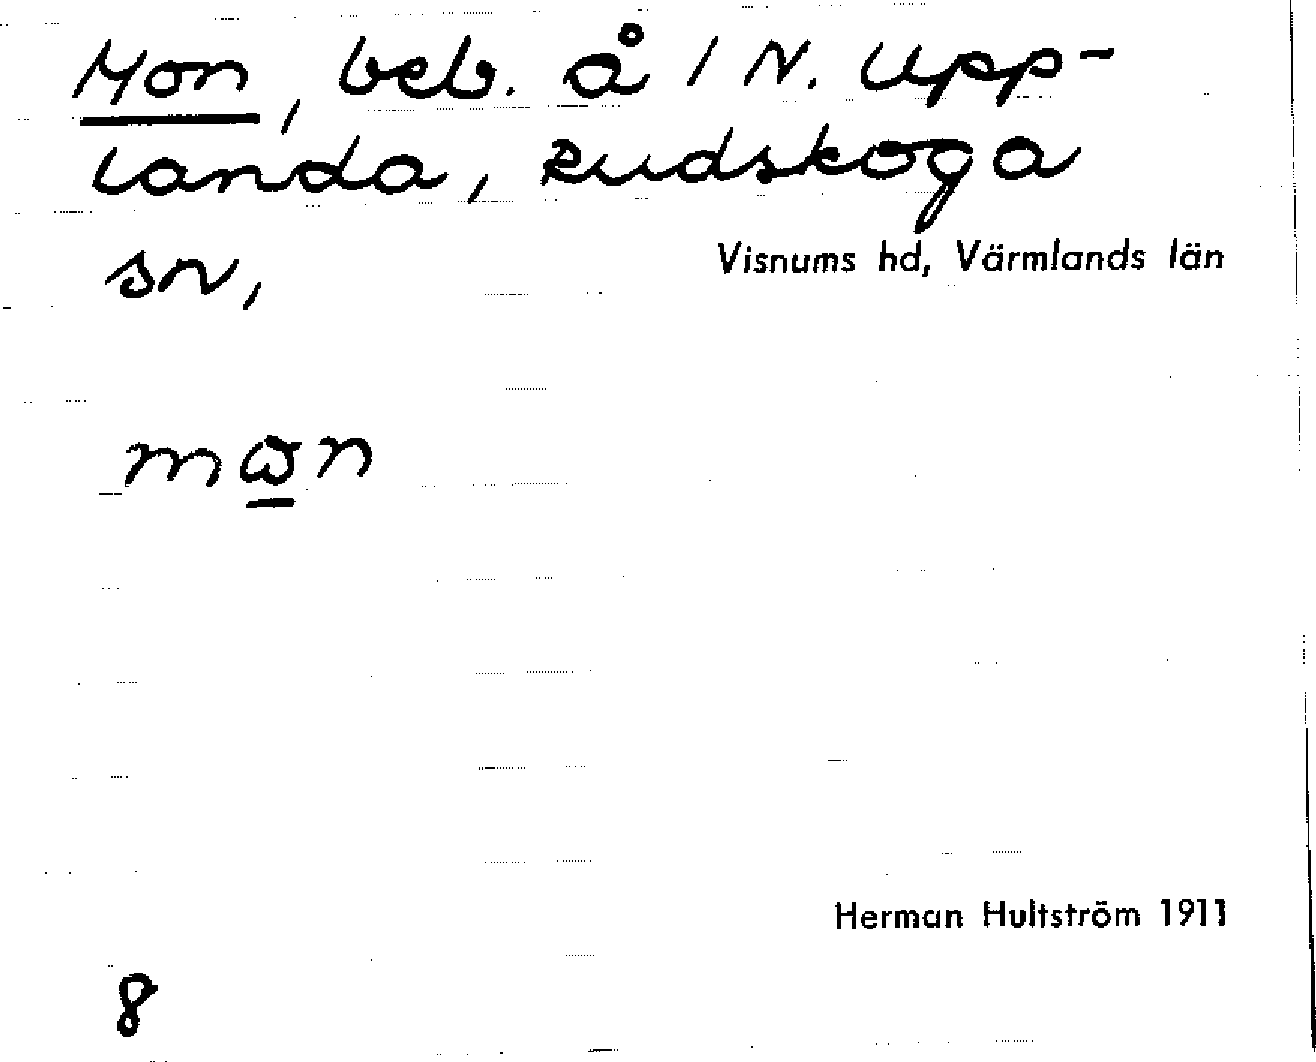 Mon, beb. å 1 N. Upp-
landa, Rudskoga
sn,
Visnums hd, Värmlands län
Herman Hultström 1911
8